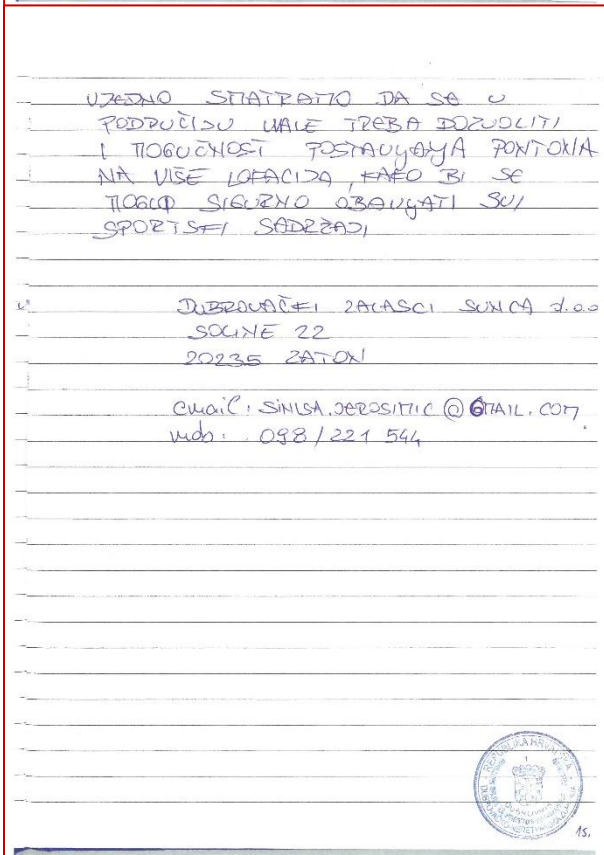 UJEDNO SMATRAMO DA SE U
PODRUČJU UALE TREBA DOZVOLITI
I MOGUĆNOST POSTAVLJANJA PONTONA
NA VIŠE LOKACIJA, KAKO BI SE
MOGLO SIGURNO OBAVLJATI SVI
SPORTSKI SADRŽAJI
DUBROVAČKI ZALASCI SUNCA d.o.o
SOLINE 22
20235 ZATON
email: SINISA.JEROSIMIC@GMAIL.COM
mob: 098/221 544
REPUBLIKA HRVATSKA
1
15.